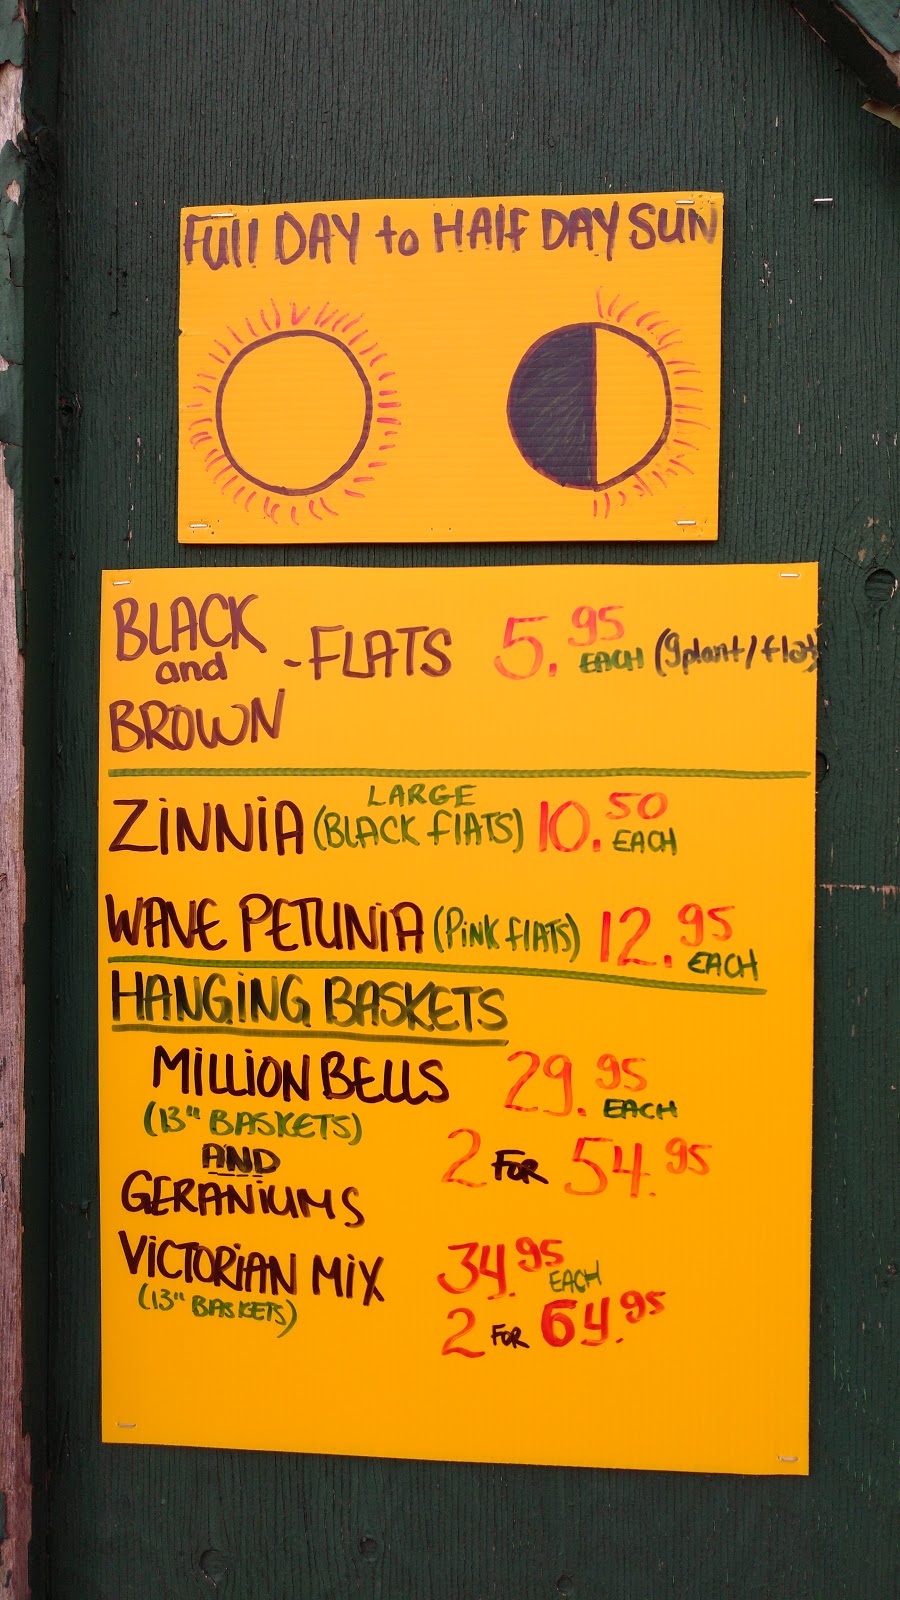 Full DAY to HAlf DAY SUN
BLACK
and -FLATS 5.95 EACH (9plant/flat)
BROWN
LARGE
ZiNNiA (BLACK FlATS) 10.50 EACH
WAVE PETUNiA (PiNK FlATS) 12.95 EACH
HANGiNG BASKETS
MiLLiON BELLS 29.95 EACH
(13" BASKETS)
AND 2 FOR 54.95
GERANiUMS
ViCTORiAN MiX 34.95 EACH
(13" BASKETS) 2 FOR 64.95